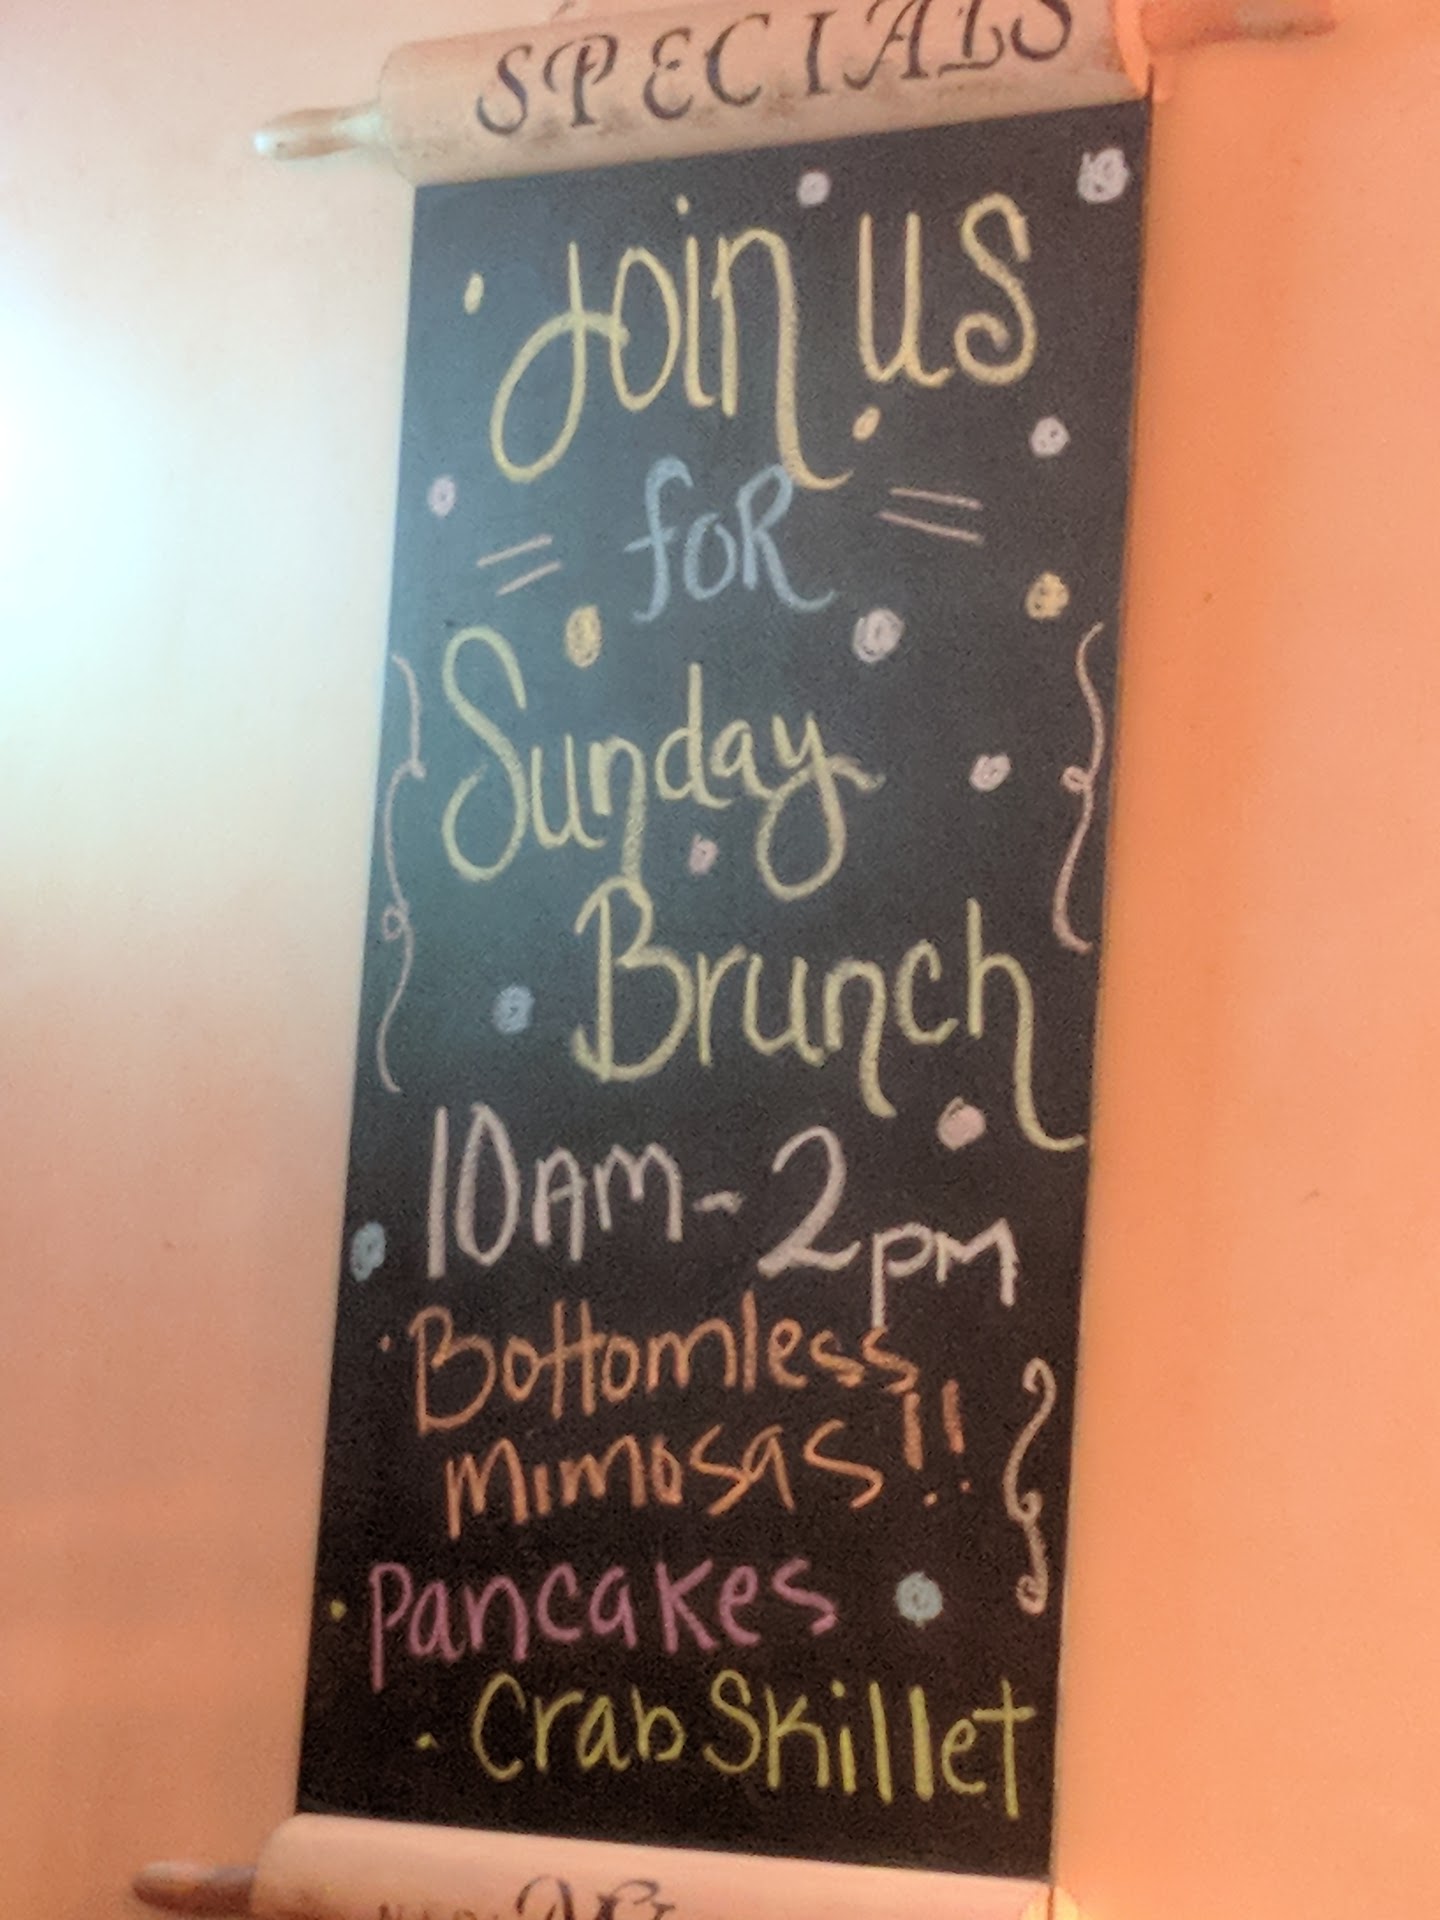 SPECIALS
Join us
for
Sunday
Brunch
10AM-2PM
·Bottomless
mimosas!!
·Pancakes
·Crab Skillet